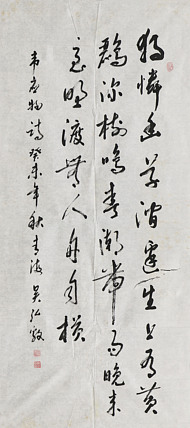 独怜幽草涧边生上有黄
鹂深树鸣春潮带雨晚来
急野渡无人舟自横
韦应物诗癸未年秋青海吴弘毅